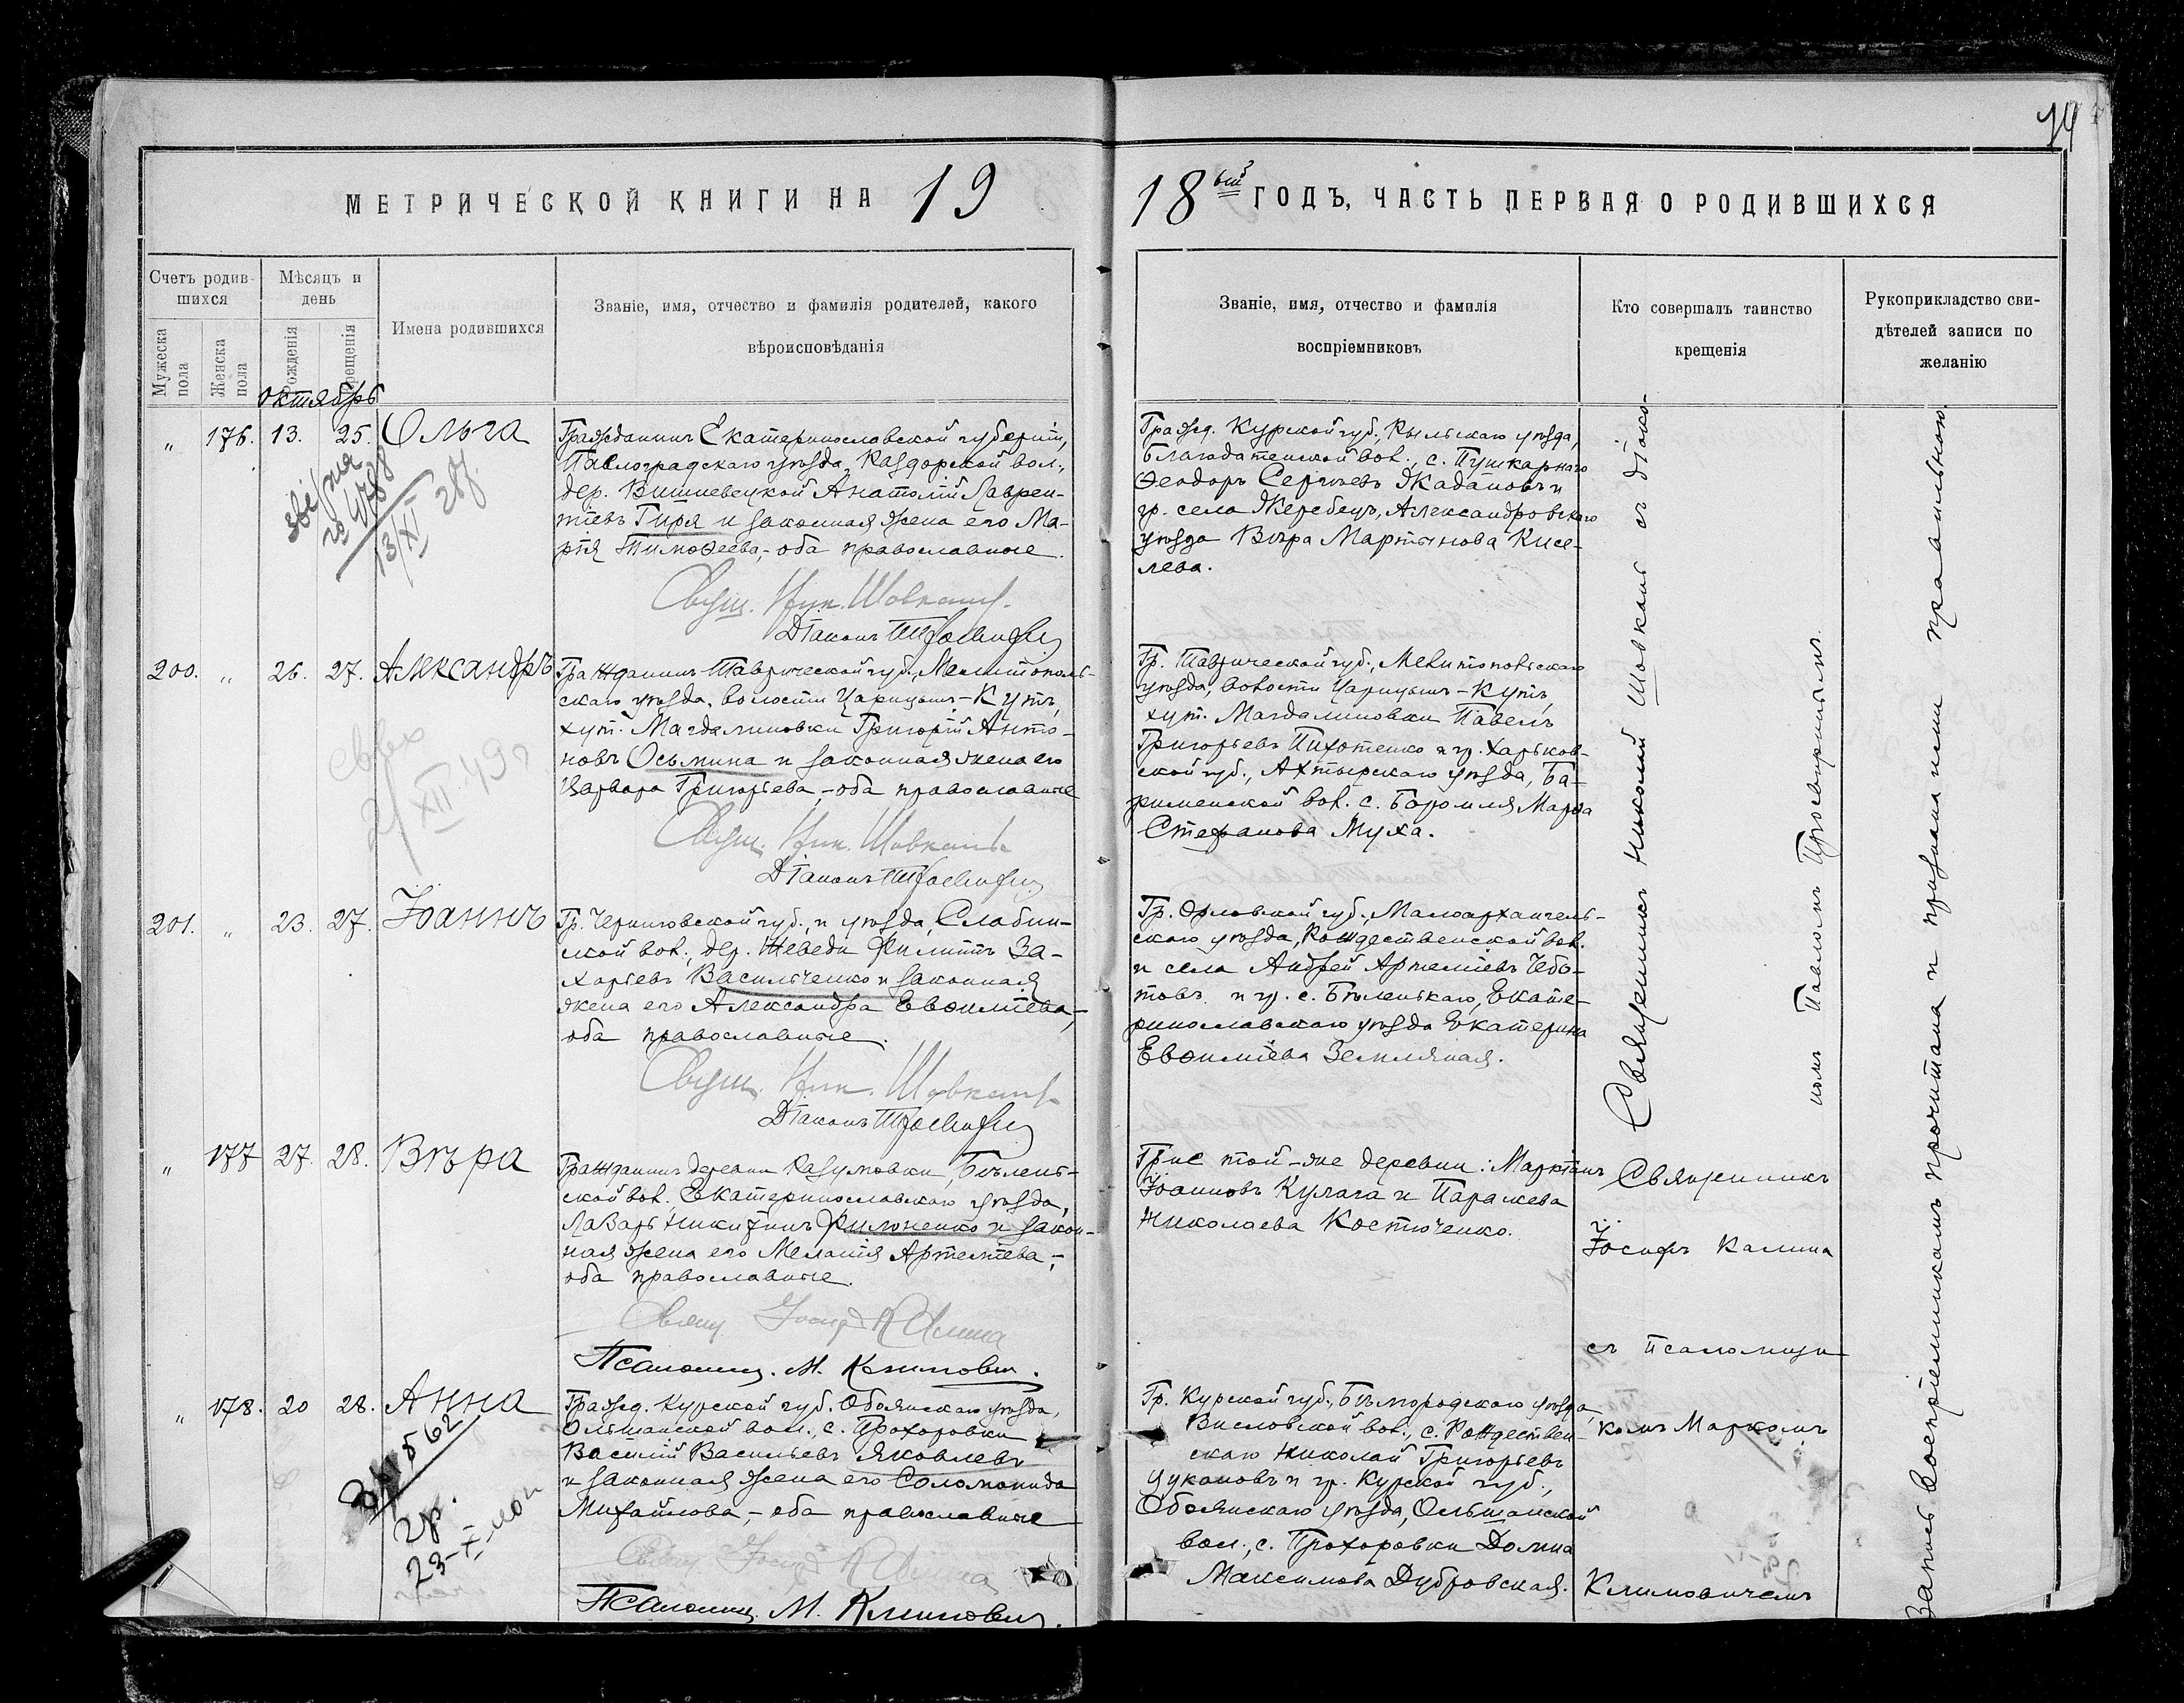 14
МЕТРИЧЕСКОЙ КНИГИ НА 19
18ый ГОДЪ, ЧАСТЬ ПЕРВАЯ О РОДИВШИХСЯ
Счетъ родив-
шихся
Мужеска пола
Женска пола
Мѣсяцъ и
день
Рожденія
Крещенія
Имена родившихся
Званіе, имя, отчество и фамилія родителей, какого
вѣроисповѣданія
Званіе, имя, отчество и фамилія
воспріемниковъ
Кто совершалъ таинство
крещенія
Рукоприкладство сви-
дѣтелей записи по
желанію
Октябрь
" 176. 13. 25. Ольга
4788
13/XI 28г.
Гражданинъ Екатеринославской губерніи,
Павлоградскаго уѣзда, Раздорской вол.,
дер. Вишневецкой Анатолій Лаврен-
тіевъ Гиря и законная жена его Ма-
рія Тимоѳеева,- оба православные.
Свящ. Ник. Шовкань.
Діаконъ
Гражд. Курской губ., Рыльскаго уѣзда,
Благодатенской вол., с. Пушкарнаго
Ѳеодоръ Сергѣевъ Жадановъ и
гр. села Жеребецъ, Александровскаго
уѣзда Вѣра Мартынова Кисе-
лева.
200. " 26. 27. Александръ
2/XII 49г
Гражданинъ Таврической губ., Мелитополь-
скаго уѣзда, волости Царицынъ-Кутъ,
хут. Магдалиновки Григорій Анто-
новъ Осьмина и законная жена его
Варвара Григорьева,- оба православные
Свящ. Ник. Шовкань
Діаконъ
Гр. Таврической губ., Мелитопольскаго
уѣзда, волости Царицынъ-Кутъ,
хут. Магдалиновки Павелъ
Григорьевъ Пихотенко и гр. Харьков-
ской губ., Ахтырскаго уѣзда,
вол. с. Боромля Марѳа
Стефанова Муха.
201. " 23. 27. Іоаннъ
Гр. Черниговской губ., и уѣзда, Слабин-
ской вол., дер. Жеведи Филиппъ За-
харьевъ Васильченко и законная
жена его Александра Евѳиміева,-
оба православные.
Свящ. Ник. Шовкань
Діаконъ
Гр. Орловской губ., Малоархангель-
скаго уѣзда, Рождественской вол.
и села Андрей Артеміевъ Чебо-
товъ и гр. с. Бѣленькаго, Екате-
ринославскаго уѣзда Екатерина
Евѳиміева Земляная.
Священникъ Николай Шовкань съ діако-
номъ Павломъ Просвирнинымъ.
" 177 27. 28. Вѣра
Гражданинъ деревни Разумовки, Бѣлень-
ской вол. Екатеринославскаго уѣзда,
Лазарь Никитинъ Филоненко и закон-
ная жена его Меланія Артеміева,-
оба православные.
Свящ Іосиф Калина
Псаломщ. М. Климович.
Гр-не той-же деревни: Маркіанъ
Іоанновъ Кулага и Параскева
Николаева Костюченко.
Священникъ
Іосифъ Калина
съ псаломщи-
комъ Маркомъ
Климовичемъ
" 178. 20 28. Анна
562
гр.
23-X-
Гражд. Курской губ. Обоянскаго уѣзда,
Ольшанской вол., с. Прохоровки
Василій Васильевъ Яковлевъ
и законная жена его Соломонида
Михайлова,- оба православные
Свящ Іосиф Калина
Псаломщ. М. Климович.
Гр. Курской губ., Бѣлгородскаго уѣзда,
Висловской вол., с. Рождествен-
скаго Николай Григорьевъ
Цукановъ и гр. Курской губ.,
Обоянскаго уѣзда, Ольшанской
вол., с. Прохоровки Домна
Максимова Дубровская.
Запись воспріемникамъ прочитана и признана ими правильною.